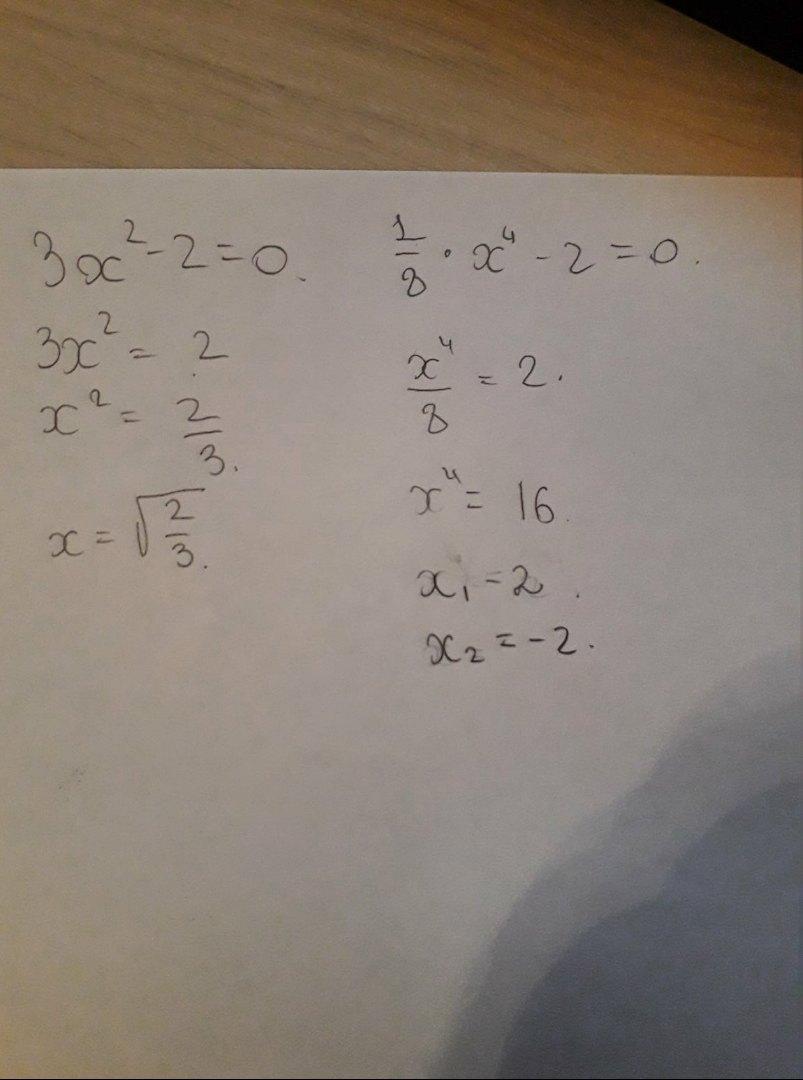 3x² - 2 = 0.
3x² = 2
x² = 2/3.
x = √(2/3).
1/8 · x⁴ - 2 = 0.
x⁴/8 = 2.
x⁴ = 16.
x₁ = 2.
x₂ = -2.